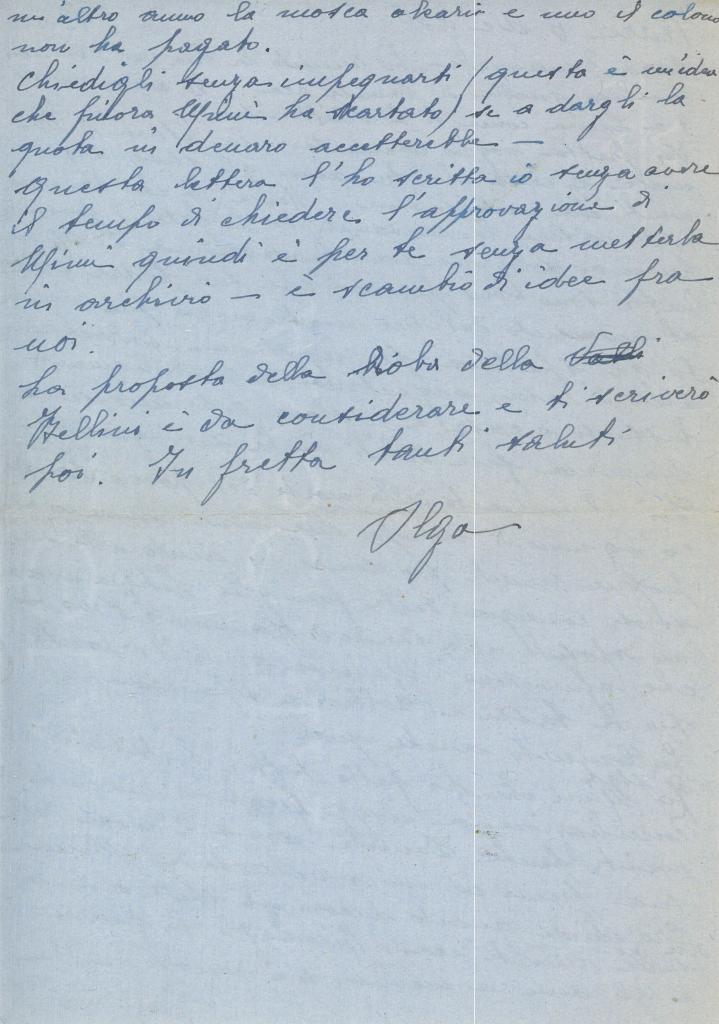 un'altro anno la mosca olearia e uno il colono
non ha pagato.
Chiedigli senza impegnarti (questa è un'idea
che finora Mimì ha scartato) se a dargli la
quota in denaro accetterebbe —
Questa lettera l'ho scritta io senza avere
il tempo di chiedere l'approvazione di
Mimì quindi è per te senza metterla
in archivio — è scambio di idee fra
noi.
La proposta della roba della
Bellini è da considerare e ti scriverò
poi. In fretta tanti saluti
Olga